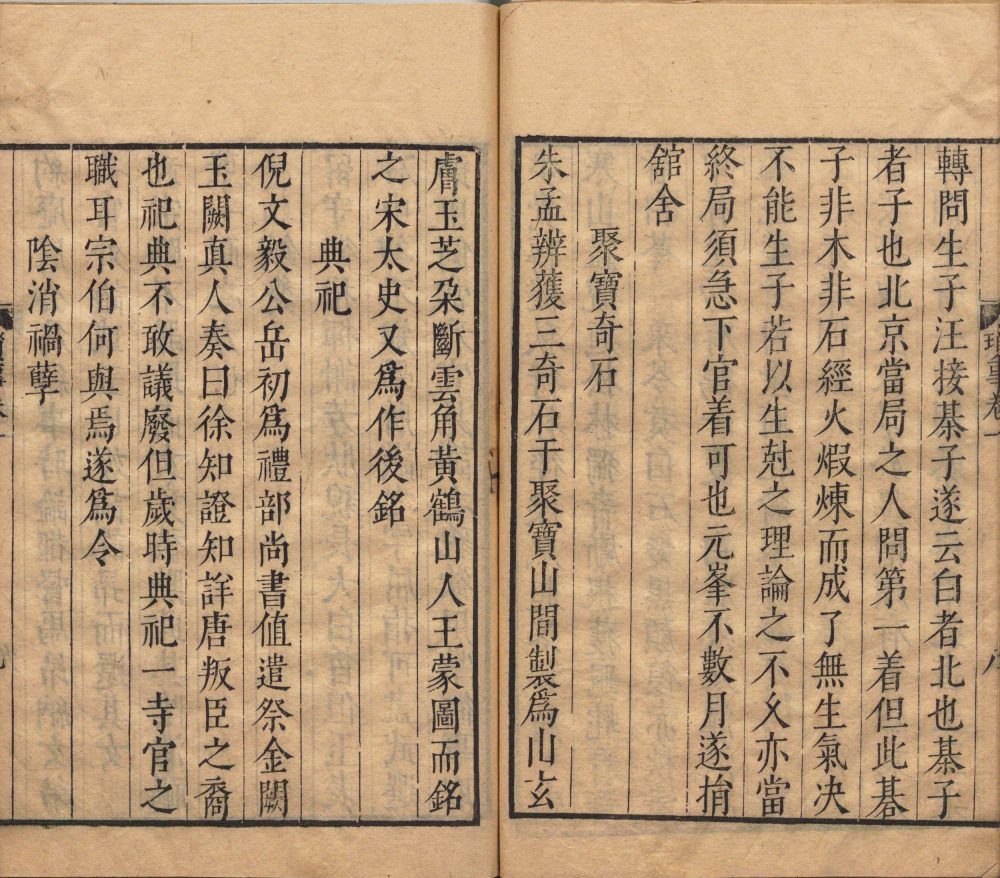 轉問生子汪接棊子遂云白者北也棊子
者子也北京當局之人問第一着但此碁
子非木非石經火煆煉而成了無生氣决
不能生子若以生尅之理論之不久亦當
終局須急下官着可也元峯不數月遂捐
舘舍
聚寶奇石
朱孟辨獲三奇石于聚寶山間製爲山玄
膚玉芝朶斷雲角黃鶴山人王蒙圖而銘
之宋太史又爲作後銘
典祀
倪文毅公岳初爲禮部尚書值遣祭金闕
玉闕真人奏曰徐知證知詳唐叛臣之裔
也祀典不敢議廢但歲時典祀一寺官之
職耳宗伯何與焉遂爲令
陰消禍孽